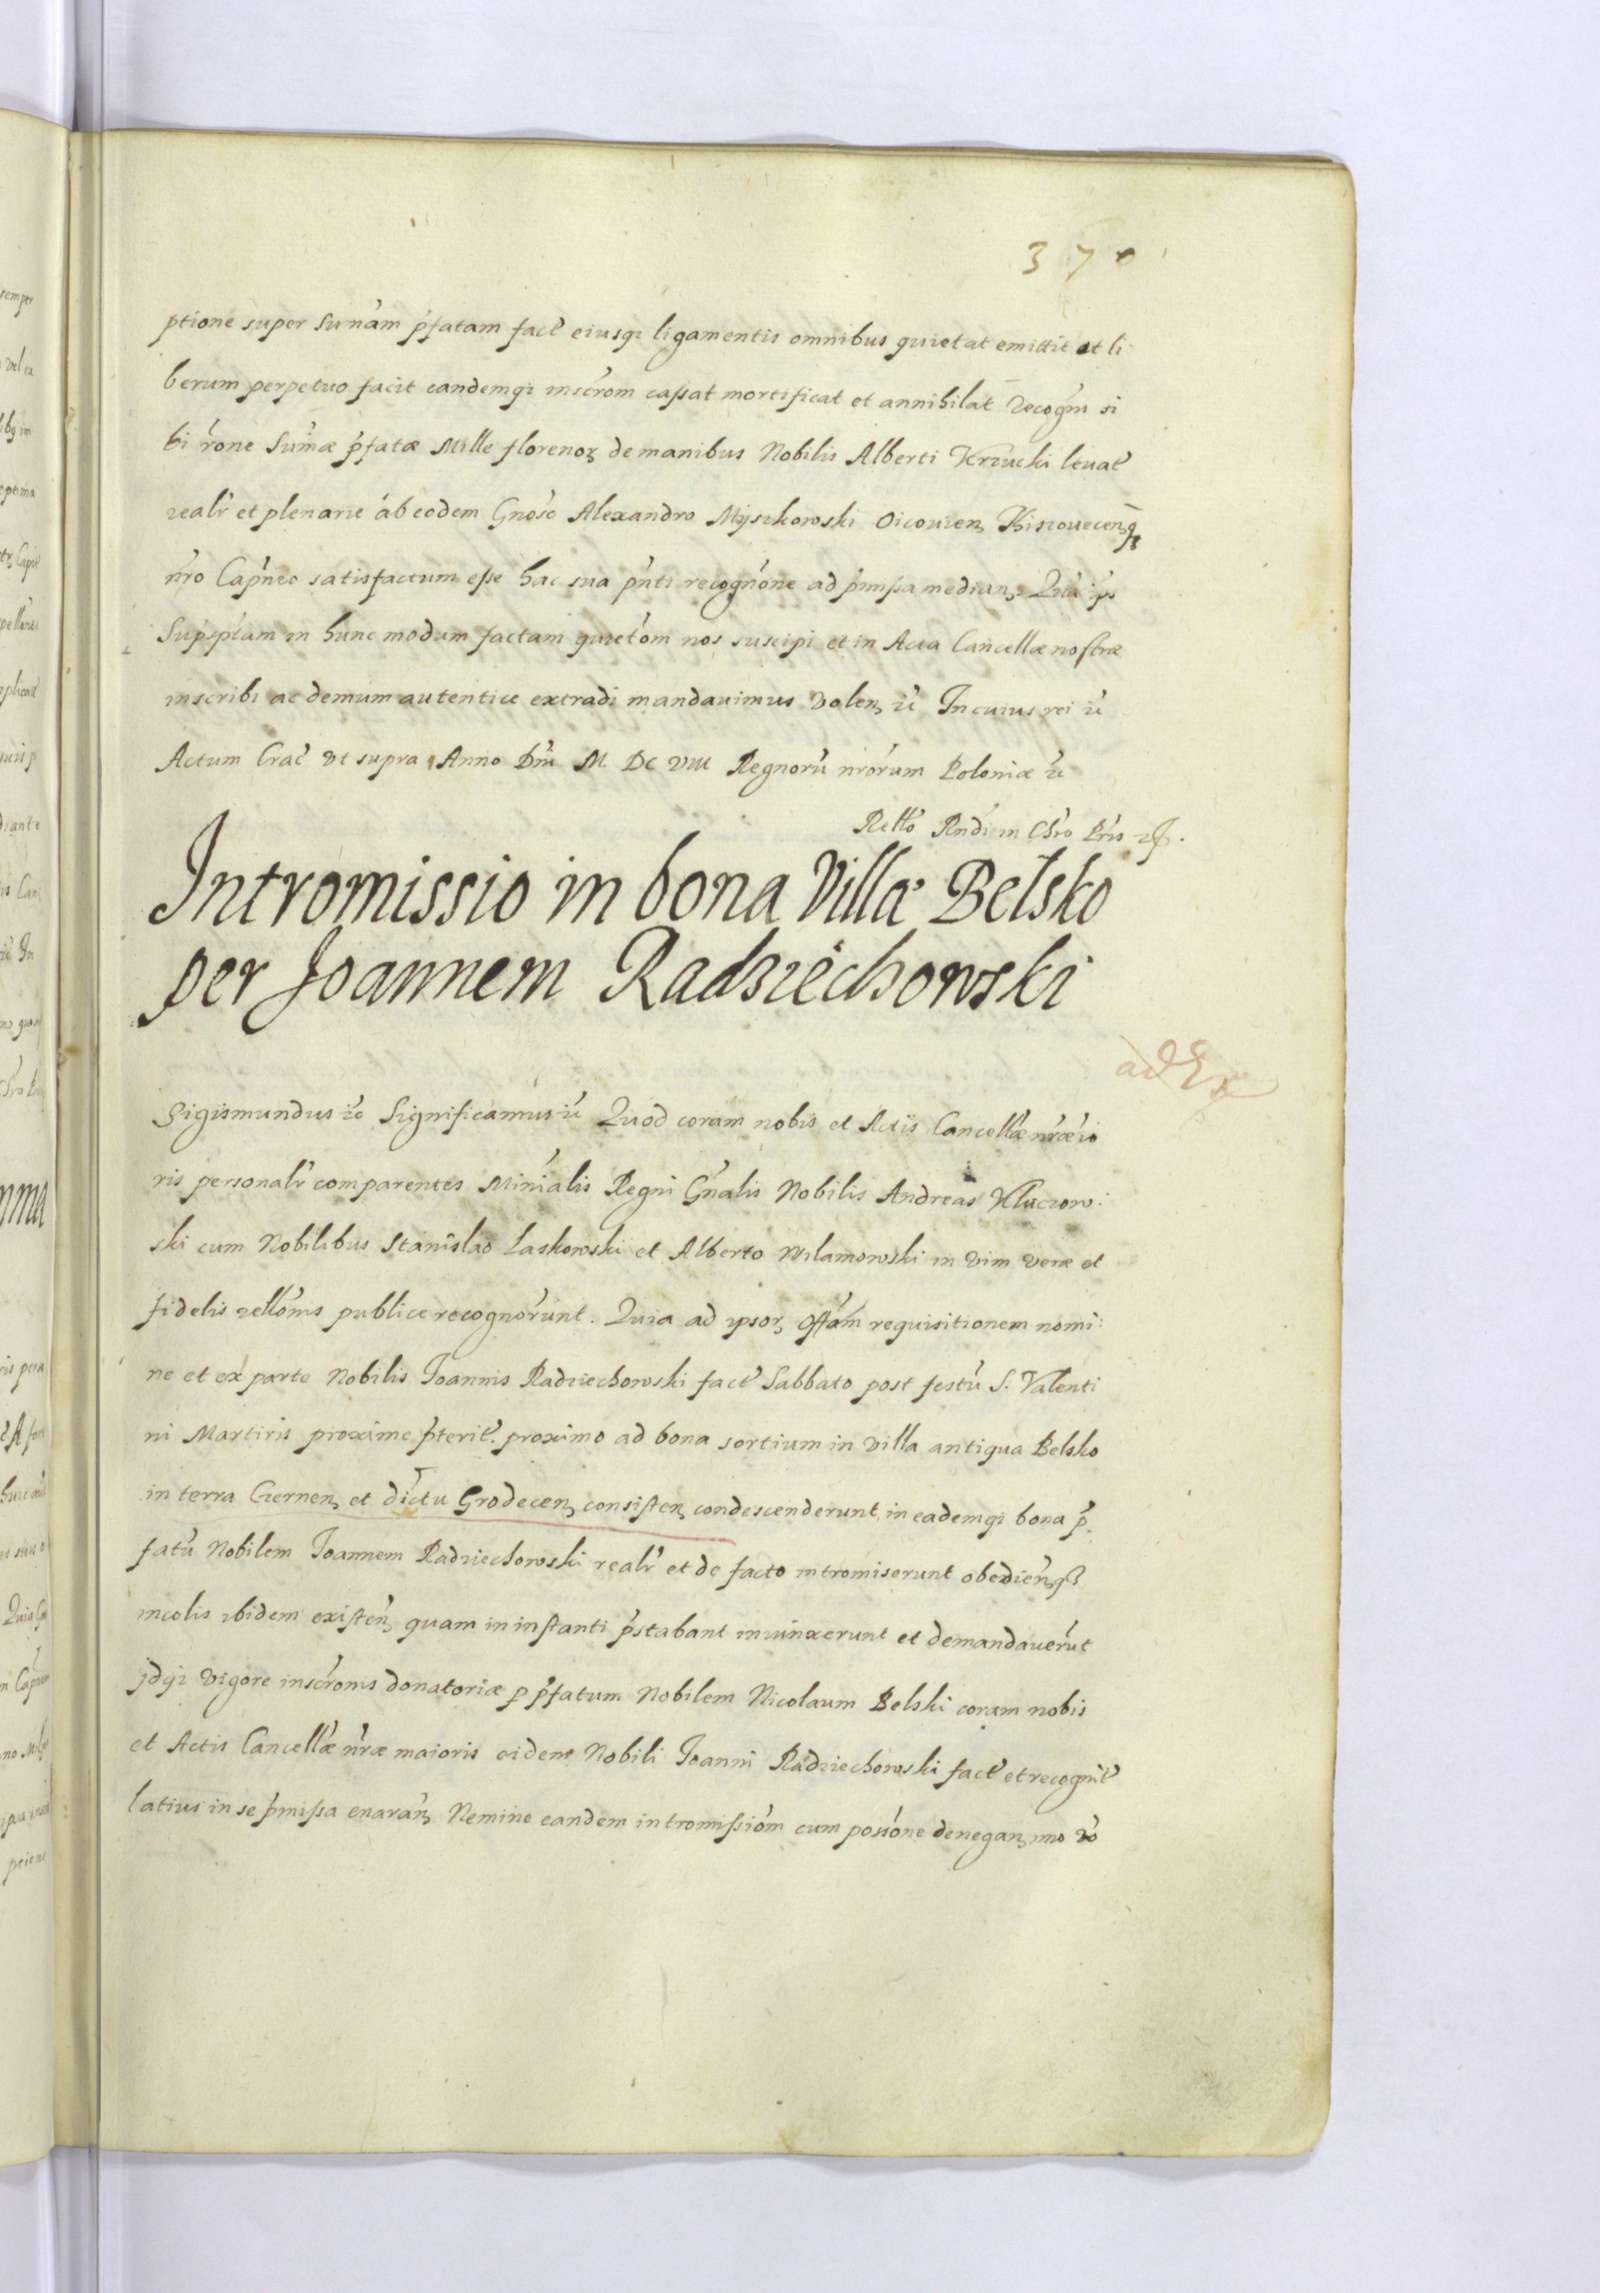 370
ptione super Sum̃am p̃fatam fact̃ eiusq̨ ligamentis omnibus quietat emittit et li:
berum perpetuo facit eandemq̨ inscr̃om cassat mortificat et annihilat recogñ si
bi r̃one Sum̃æ p̃fatæ Mille florenoꝝ de manibus Nobilis Alberti Krzucki leuat̃
realr̃ et plenarie ab eodem Gnõso Alexandro Myszkowski Oicouien̨
nr̃o Cap̃neo satisfactum esse hac sua p̃nti recogñone ad p̃missa median̨ Quã
in hunc modum factam quietõm nos suscipi et in Acta Cancellæ nostræ
inscribi ac demum autentice extradi mandauimus volen̨ r̃c̃ In cuius rei r̃c̃
Actum Crac̃ vt supra Anno Dñi M DC VIII Regnorũ nr̃orum Poloniæ r̃c̃
Rel̃lo Rñdi in Chr̃o Pr̃is
Intromissio in bona Villæ Belsko
per Joannem Radziechowski
ad
Sigismundus r̃c̃ Significamus r̃c̃ Quod coram nobis et Actis Cancell̃æ nr̃æ io
ris personalr̃ comparentes Minĩalis Regni Gñalis Nobilis Andreas Kluczow:
ski cum Nobilibus Stanislao Laskowski et Alberto Wilamowski in vim veræ et
fidelis rel̃lonis publice recognor̃unt. Quia ad ipsoꝝ requisitionem nomi:
ne et ex parte Nobilis Joannis Radziechowski fact̃ Sabbato post festũ S. Valenti
ni Martiris proxime p̃terit̃. proximo ad bona sortium in villa antiqua Belsko
in terra Czernen̨ et dictu Grodecen̨ consisten̨ condescenderunt, in eademq̨ bona p̃
fatũ Nobilem Joannem Radziechowski realr̃ et de facto intromiserunt obedien̨
incolis ibidem existen̨ quam in instanti p̃stabant iniunxerunt et demandauer̃ut
jdq̨ vigore inscr̃onis donatoriæ ꝑ p̃fatum Nobilem Nicolaum Belski coram nobis
et Actis Cancell̃æ nr̃æ maioris eidem Nobili Joanni Radziechowski fact̃ et recognit̃
latius in se p̃missa enaran̨ Nemine eandem intromissiõm cum possõne denegan̨ imo